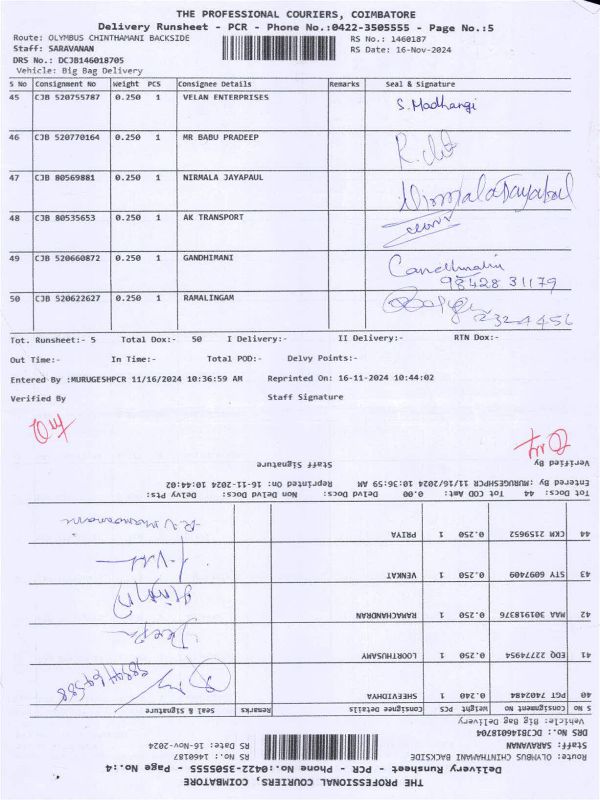 THE PROFESSIONAL COURIERS, COIMBATORE
Delivery Runsheet - PCR - Phone No.:0422-3505555 - Page No.:5
Route: OLYMPUS CHINTHAMANI BACKSIDE RS No.: 1460187
Staff: SARAVANAN RS Date: 16-Nov-2024
DRS No.: DCJB146018705
Vehicle: Big Bag Delivery
S No Consignment No Weight PCS Consignee Details Remarks Seal & Signature
45 CJB 520755787 0.250 1 VELAN ENTERPRISES S. Madhangi
46 CJB 520770164 0.250 1 MR BABU PRADEEP
47 CJB 80569881 0.250 1 NIRMALA JAYAPAUL Nirmala Jayapaul
48 CJB 80535653 0.250 1 AK TRANSPORT
49 CJB 520660872 0.250 1 GANDHIMANI Gandhimani
98428 31179
50 CJB 520622627 0.250 1 RAMALINGAM
2324456
Tot. Runsheet:- 5 Total Dox:- 50 I Delivery:- II Delivery:- RTN Dox:-
Out Time:- In Time:- Total POD:- Delvy Points:-
Entered By :MURUGESHPCR 11/16/2024 10:36:59 AM Reprinted On: 16-11-2024 10:44:02
Verified By Staff Signature
THE PROFESSIONAL COURIERS, COIMBATORE
Delivery Runsheet - PCR - Phone No.:0422-3505555 - Page No.:4
Route: OLYMPUS CHINTHAMANI BACKSIDE RS No.: 1460187
Staff: SARAVANAN RS Date: 16-Nov-2024
DRS No.: DCJB146018704
Vehicle: Big Bag Delivery
S No Consignment No Weight PCS Consignee Details Remarks Seal & Signature
40 PGT 7402484 0.240 1 SHEEVIDHYA
41 EDQ 22774954 0.250 1 LOORTHUSAMY Deepa
42 MAA 301918376 0.250 1 RAMACHANDRAN
43 STY 6097409 0.250 1 VENKAT
44 CKM 2159652 0.250 1 PRIYA
Tot Docs: 44 Tot COD Amt: 0.00 Delvd Docs: Non Delvd Docs: Delvy Pts:
Entered By :MURUGESHPCR 11/16/2024 10:36:59 AM Reprinted On: 16-11-2024 10:44:02
Verified By Staff Signature